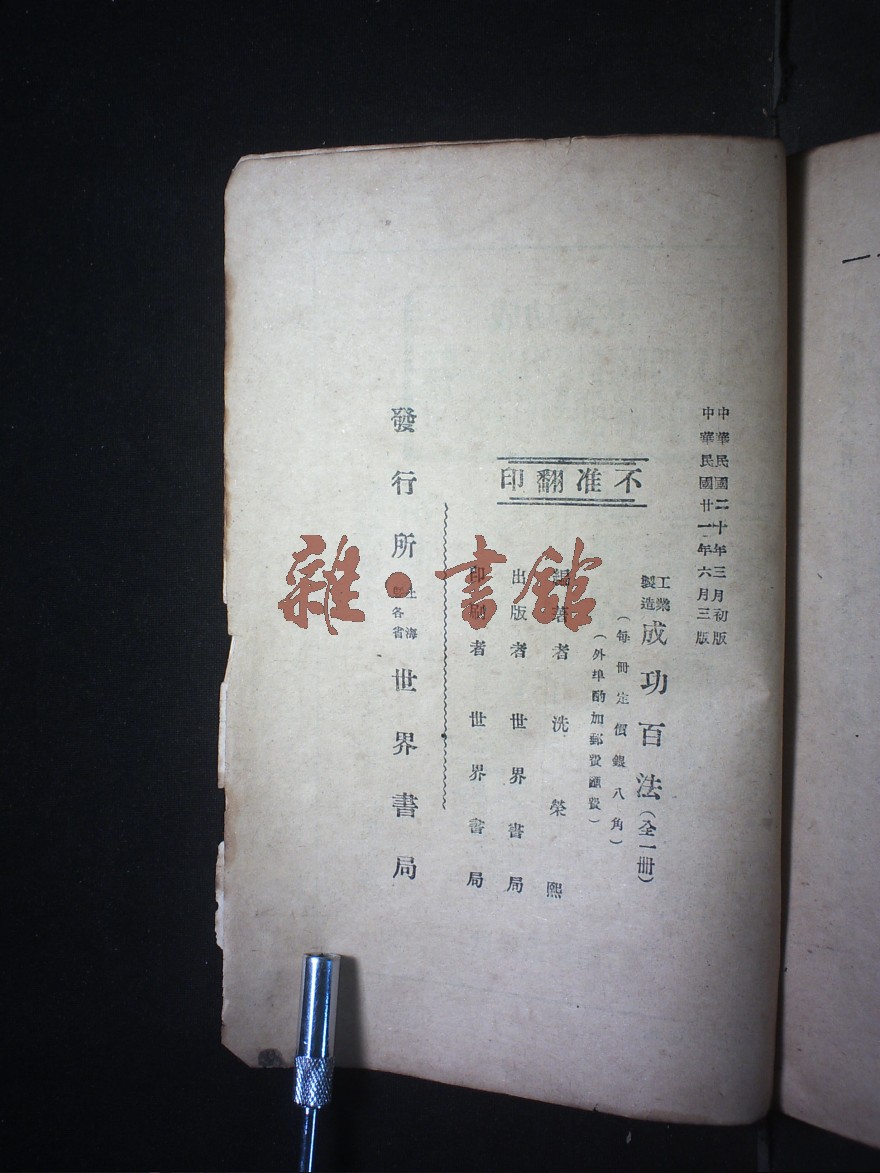 中華民國二十年三月初版
中華民國廿一年六月三版
工業製造成功百法(全一冊)
(每冊定價銀八角)
(外埠酌加郵費匯費)
不准翻印
編著者 洗榮熙
出版者 世界書局
印刷者 世界書局
發行所 上海暨各省 世界書局
雜·書館